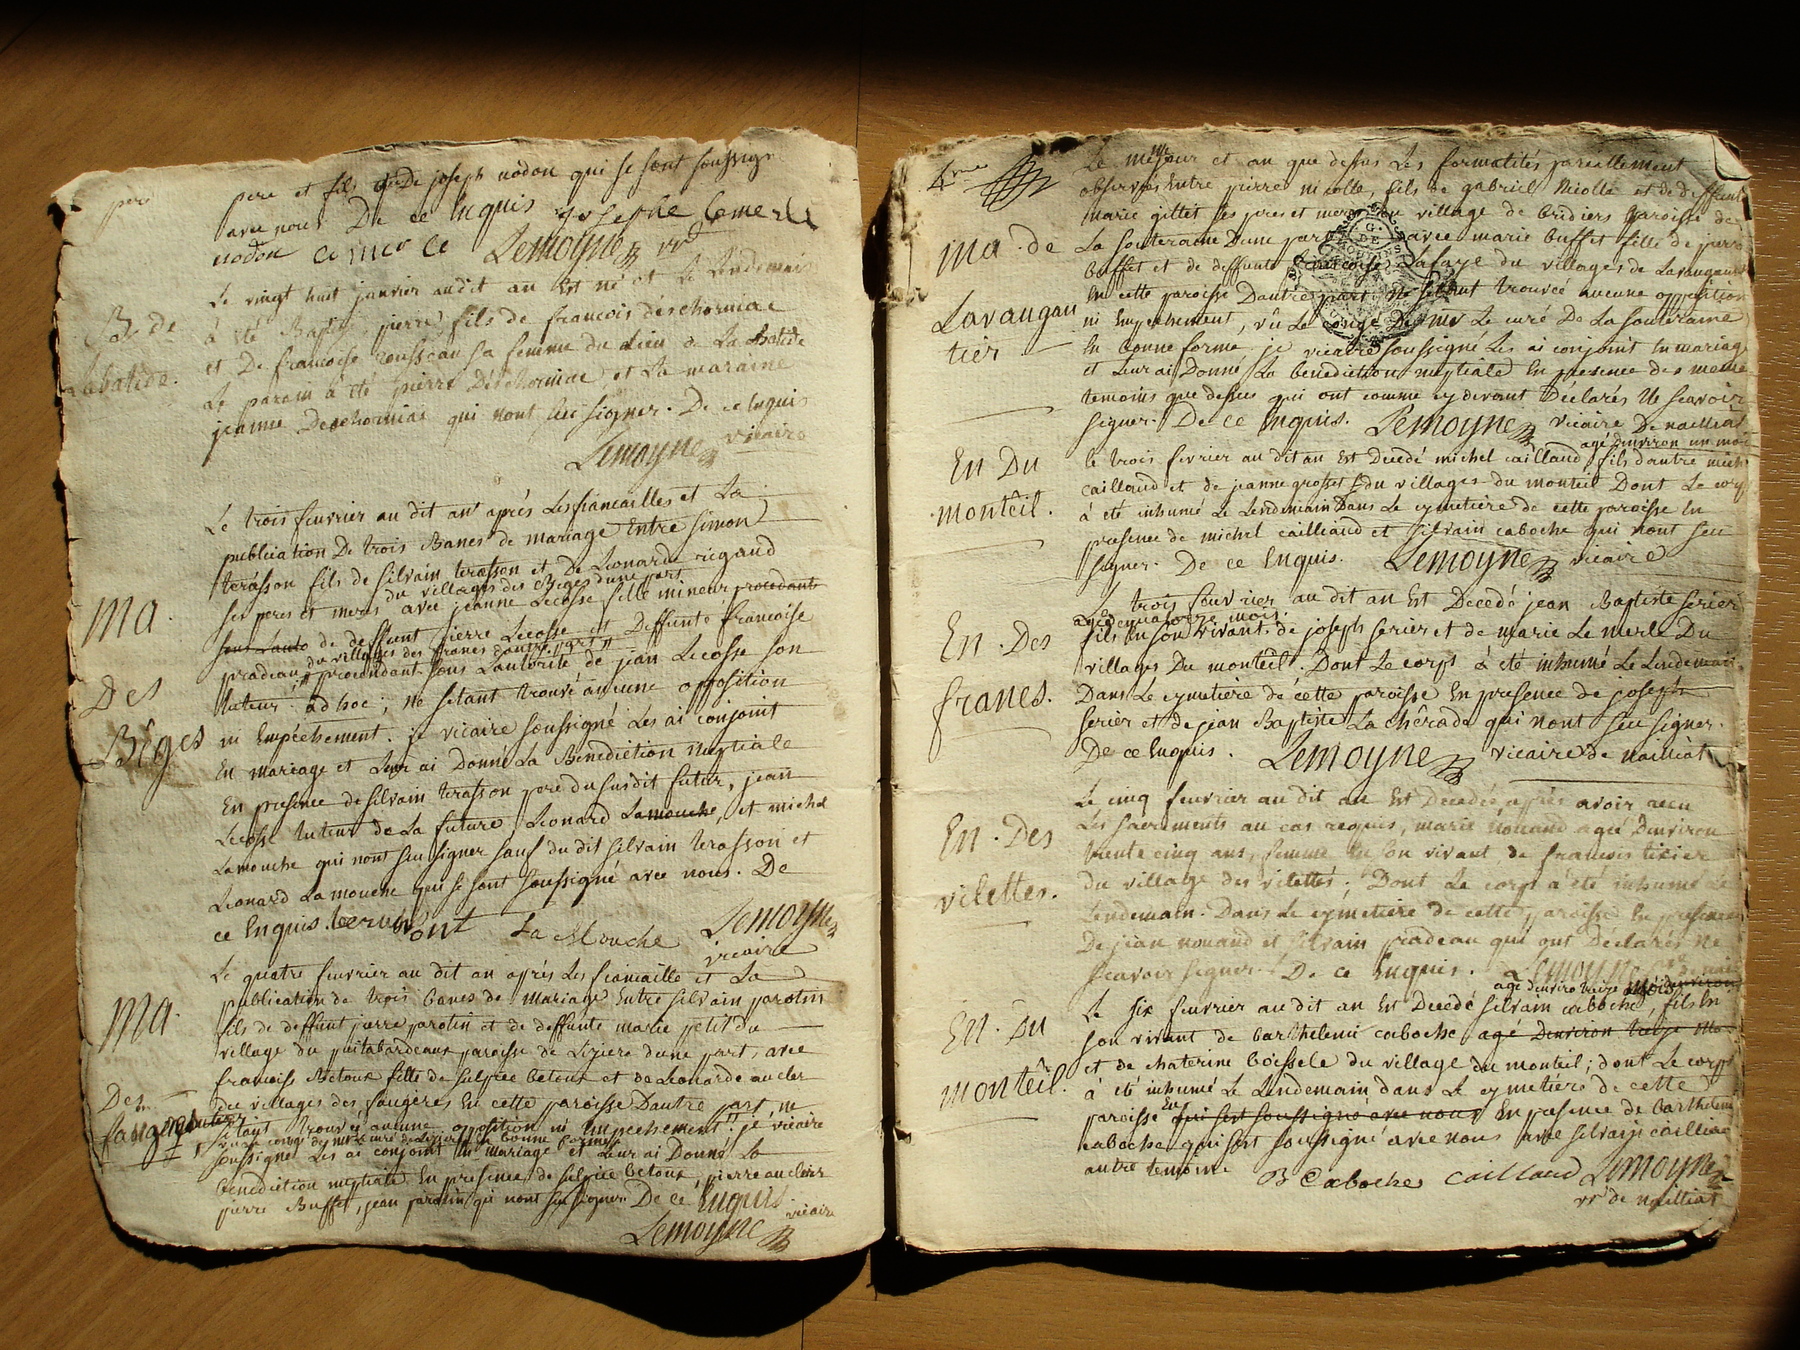 pere et fils de joseph nadon qui se sont soussigné
avec nous De ce Enquis josephe Lemerle
nadon Lemoyne vre
B. de
Labatide.
Le vingt huit janvier audit an Est né et Le Lendemain
à été Baptisé pierre, fils de francois déschormiae
et De francoise rousseau sa femme du Lieu de La Batide
Le parain à été pierre Déschormiae et La maraine
jeanne Deschormiae qui nont sceu signer. De ce Enquis
Lemoyne vicaire
ma.
Des
Bèges
Le trois fevrier au dit an après Les fiancailles et La
publication De trois Bancs de mariage Entre simon
terasson fils de silvain terasson et de Leonarde rigaud
du villages des Beges dune part
ses peres et meres avec jeanne Lecosse fille mineur procedante
sous Lauto de deffunt pierre Lecosse et Deffunte francoise
du villages des francs dautre part
pradeau, procendant sous Lautorité de jean Lecosse son
tuteur ad hoc; ne setant trouvé aucune opposition
ni Empéchement. je vicaire soussigné Les ai conjoint
En mariage et Leur ai Donné La Benediction nuptiale
En presence de silvain terasson pere du susdit futur, jean
Lecosse tuteur de La future, Leonard Lamouche, et michel
Lamouche qui nont seu signer sauf du dit silvain terasson et
Leonard Lamouche qui se sont soussigné avec nous. De
ce Enquis. La Mouche Lemoyne
vicaire
ma.
Des
faugeres
Le quatre fevrier au dit an après Les fiancaille et La
publication de trois bancs de mariage Entre silvain parotin
fils de deffunt pierre parotin et de deffunte marie petit du
village du puitabardeaux paroisse de Liziere dune part, avec
francoise Betoux fille de sulpice betoux et de Leonarde aucler
du villages des faugeres En cette paroisse Dautre part, ne
setant trouvé aucune opposition ni Empechement. je vicaire
vu le congé de mr le curé de Liziere En bonne forme
soussigné Les ai conjoint En mariage et Leur ai Donné La
benediction nuptiale En presence de sulpice betoux, pierre auclair
pierre Buffet, jean parotin qui nont seu signer. De ce Enquis
Lemoyne vicaire
4me
ma. de
Lavaugau
tier
Le meme jour et an que dessus Les formalités pareillement
observés Entre pierre nicolle, fils de gabriel Nicolle et de deffunte
marie gittet ses peres et meres du village de bridiers paroisse de
La Souteraine Dune part avec marie buffet fille de pierre
buffet et de deffunte francoise Lafaye du villages de Lavaugautier
En cette paroisse Dautre part. ne setant trouveé aucune opposition
ni Empechement, vû Le congé De mr Le curé De La Souteraine
En bonne forme. je vicaire soussigné Les ai conjoint En mariage
et Leur ai Donné La benediction nuptiale En presence des meme
temoins que dessus qui ont comme cy devant Déclarés Ne scavoir
signer. De ce Enquis. Lemoyne vicaire De nailliat
En Du
monteîl.
agé denviron un mois
le trois fevrier au dit an Est Decedé michel caillaud, fils dautre michel
caillaud et de jeanne grosset du villages du monteil Dont Le corp
à été inhumé Le Lendemain Dans Le cymetiere de cette paroisse En
presence de michel cailliaud et silvain caboche qui nont seu
signer. De ce Enquis. Lemoyne vicaire
En. Des
francs.
Le trois fevrier au dit an Est Decedé jean Baptiste serier
agé de quatorze mois
fils En son vivant de joseph serier et de marie Le merle Du
villages Du monteîl. Dont Le corps à été inhumé Le Lendemain
Dans Le cymetière de cette paroisse En presence de joseph
serier et de jean Baptiste Lachérade qui nont seu signer.
De ce Enquis. Lemoyne vicaire de nailliat
En. Des
vilettes.
Le cinq fevrier au dit an Est Decedée après avoir recu
Les sacrements au cas requis, marie nouaud ageé Denviron
trente cinq ans, femme En son vivant de francois tixier
du village des vilettes. Dont Le corps à été inhumé Le
Lendemain. Dans Le cymetiere de cette paroisse En presence
De jean nouaud et silvain pradeau qui ont Déclarés Ne
scavoir signer. De ce Enquis. Lemoyne
En. Du
monteîl.
agé denviro treize mois
Le six fevrier au dit an Est Decedé silvain caboche, fils En
son vivant de barthelemi caboche agé Denviron treize mo
et de chaterine boessele du village du monteil; dont Le corps
à été inhumé Le Lendemain dans Le cymetiére de cette
paroisse En qui sest soussigné avec nous En presence de barthelemi
caboche qui sest soussigné avec nous avec silvain cailliau
autre temoin. B Caboche caillaud Lemoyne
vre de nailliat